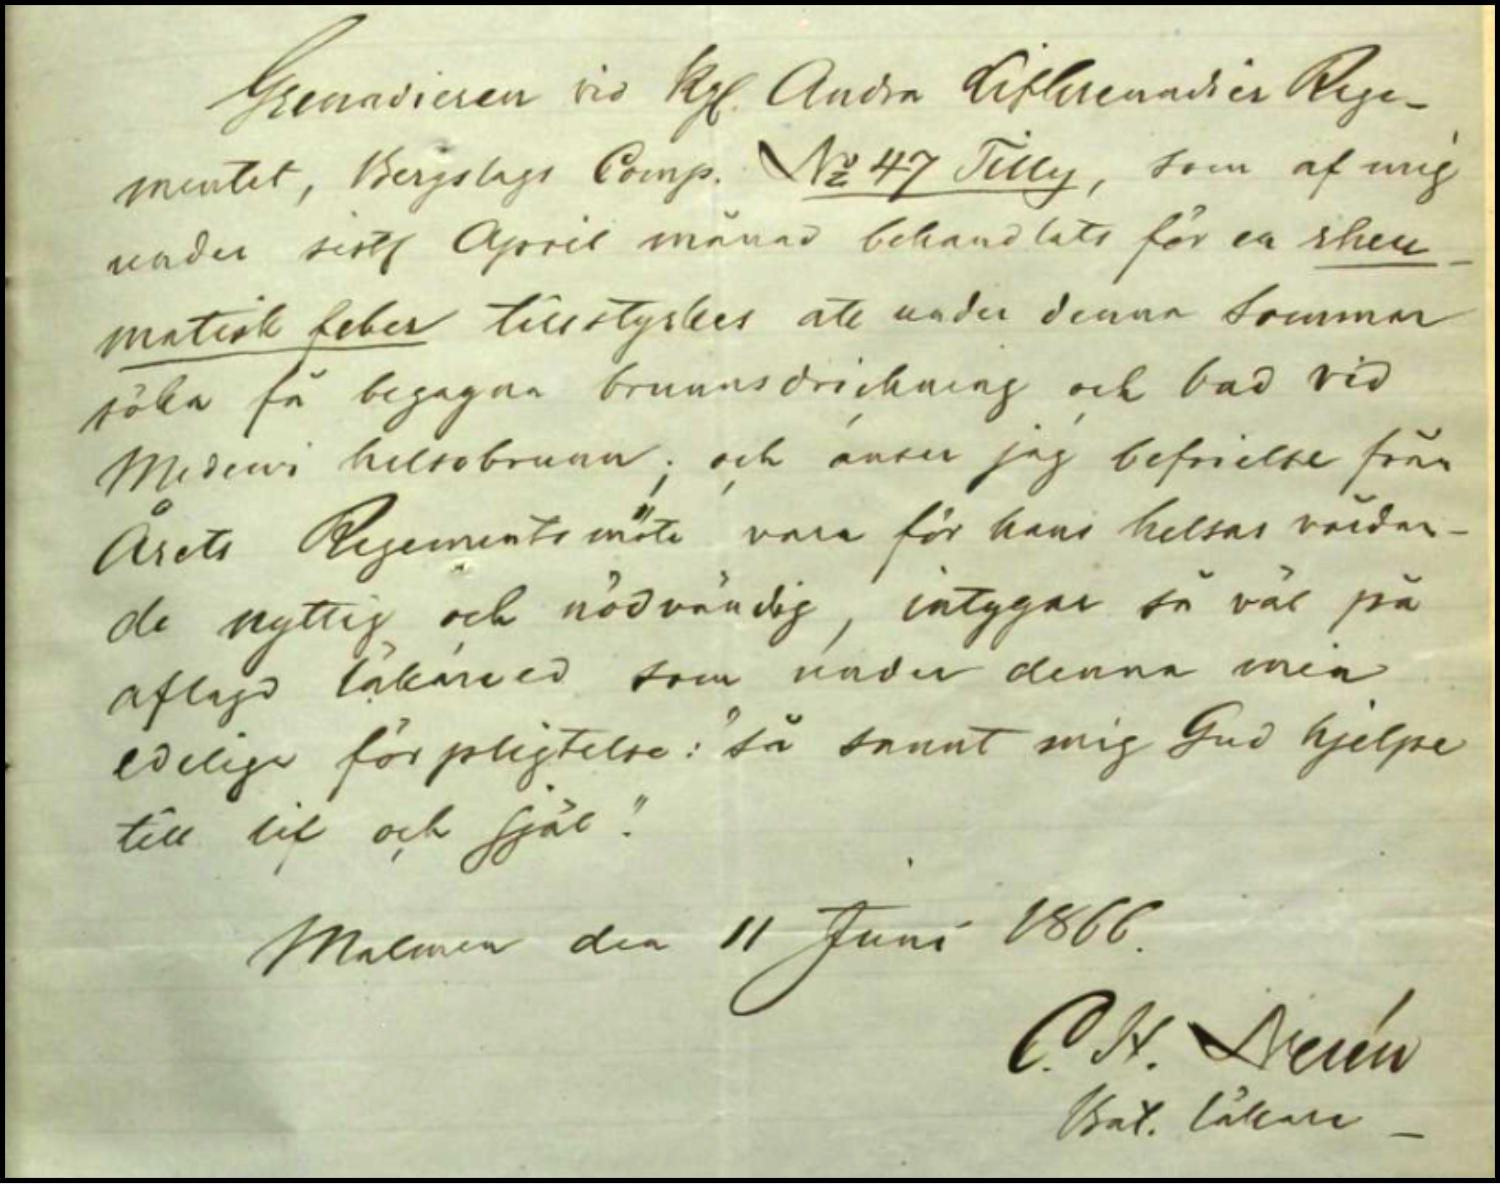 Grenadieren vid Kgl. Andra Lifgrenadier Rege-
mentet, Bergslags Comp. No 47 Tilly, som af mig
under sistl April månad behandlats för en rheu-
matisk feber tillstyrkes att under denna Sommar
söka få begagna brunnsdrickning och bad vid
Medewi helsobrunn; och anser jag befrielse från
Årets Regementsmöte vara för hans helsas vårdan-
de nyttig och nödvändig, intygar så väl på
aflagd läkareed som under denna min
edeliga förpligtelse: "så sannt mig Gud hjelpe
till lif och själ".
Malmen den 11 Juni 1866.
C. H. Nerén
Bat. läkare -